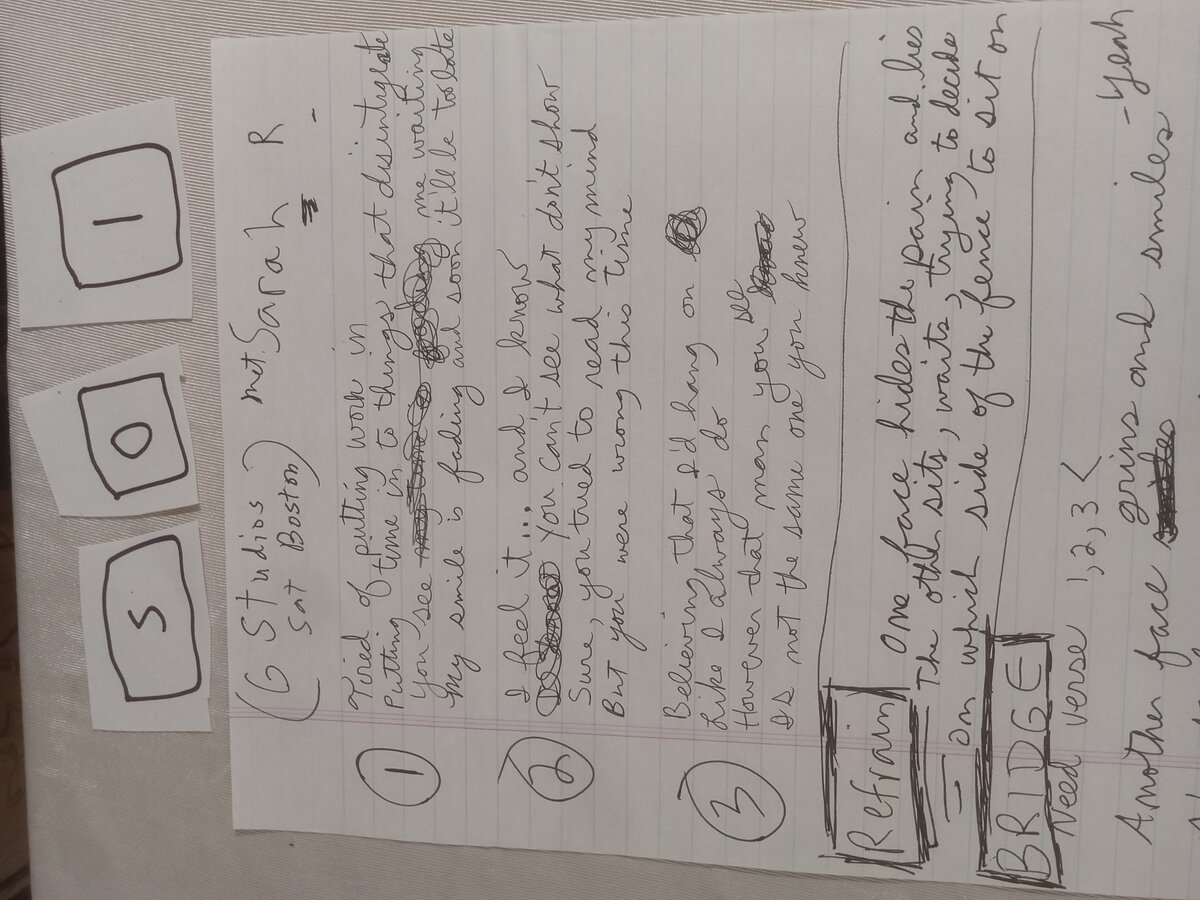 5 0 1
(G Studios
Sat Boston) met. Sarah R -
① Tired of putting work in
Putting time in to things that disintigrate
You see me waiting
My smile is fading and soon it'll be too late
② I feel it... and I know
You can't see what don't show
Sure, you tried to read my mind
But you were wrong this time
③ Believing that I'd hang on
Like I always do
However that man you see
Is not the same one you knew
Refrain one face hides the pain and lies
The other sits, waits, trying to decide
on which side of the fence to sit on
BRIDGE
Need verse 1, 2, 3 <
Another face grins and smiles - yeah